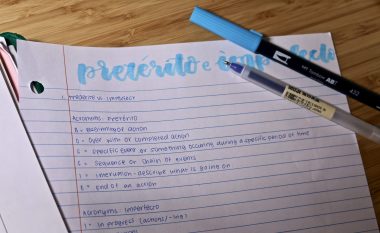 pretérito e imperfecto
PRETÉRITO VS IMPERFECT
Acronyms: Pretérito
B = Beginning of action
O = Over with or completed action
S = Specific Event or something occurring during a specific period of time
S = Sequence or chain of events
I = Interruption - describe what is going on
E = End of an action
Acronyms: Imperfecto
I = In progress (actions/-ing)